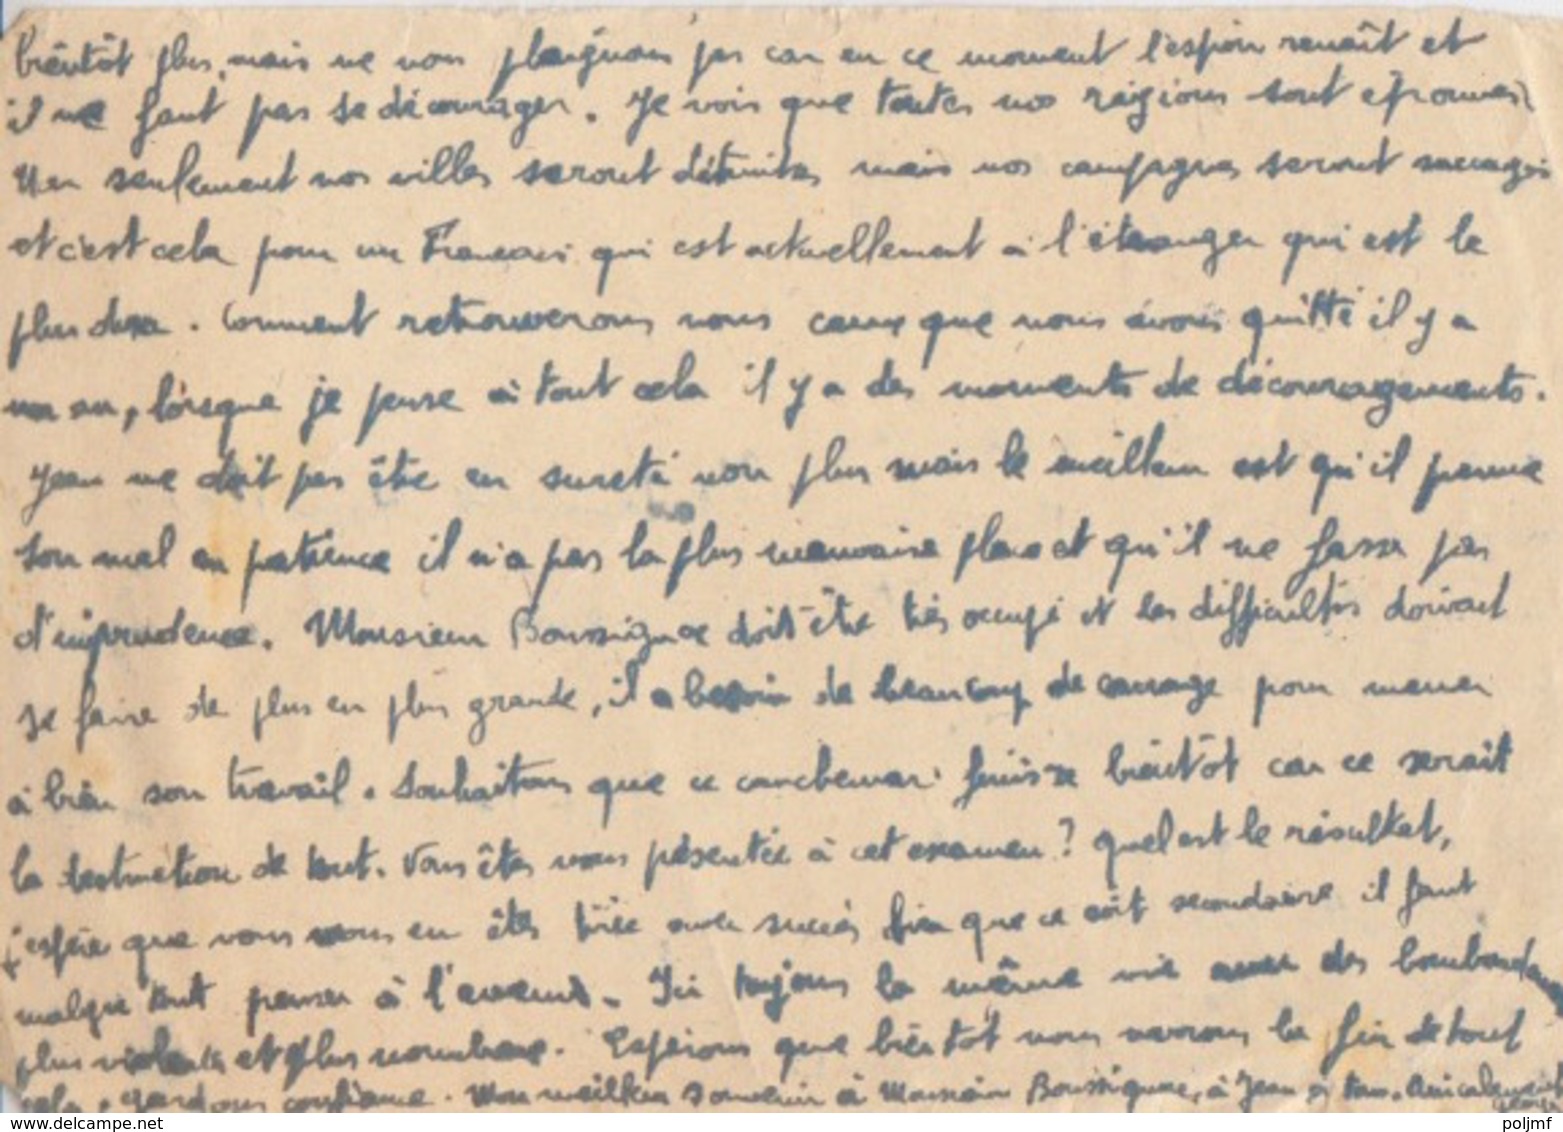 bientôt plus, mais ne nous plaignons pas car en ce moment l'espoir renaît et
il ne faut pas se décourager. Je vois que toutes nos régions sont éprouvées
Non seulement nos villes seront détruites mais nos campagnes seront saccagés
et c'est cela pour un Français qui est actuellement à l'étranger qui est le
plus dur. Comment retrouverons nous ceux que nous avons quitté il y a
un an, lorsque je pense à tout cela il y a des moments de découragements.
Jean ne doit pas être en sureté non plus mais le meilleur est qu'il prenne
son mal en patience il n'a pas la plus mauvaise place et qu'il ne fasse pas
d'imprudence. Monsieur Boussignac doit être très occupé et les difficultés doivent
se faire de plus en plus grande, il a besoin de beaucoup de courage pour mener
à bien son travail. Souhaitons que ce cauchemar finisse bientôt car ce serait
la destruction de tout. Vous êtes vous présentée à cet examen? quel est le résultat,
j'espère que vous vous en êtes tirée avec succès bien que ce soit secondaire il faut
malgré tout penser à l'avenir. Ici toujours la même vie avec des bombardements
plus violents et plus nombreux. Espérons que bientôt nous verrons la fin de tout
cela. gardons confiance. Mon meilleur souvenir à Monsieur Boussignac, à Jean Amicalement
poljmf